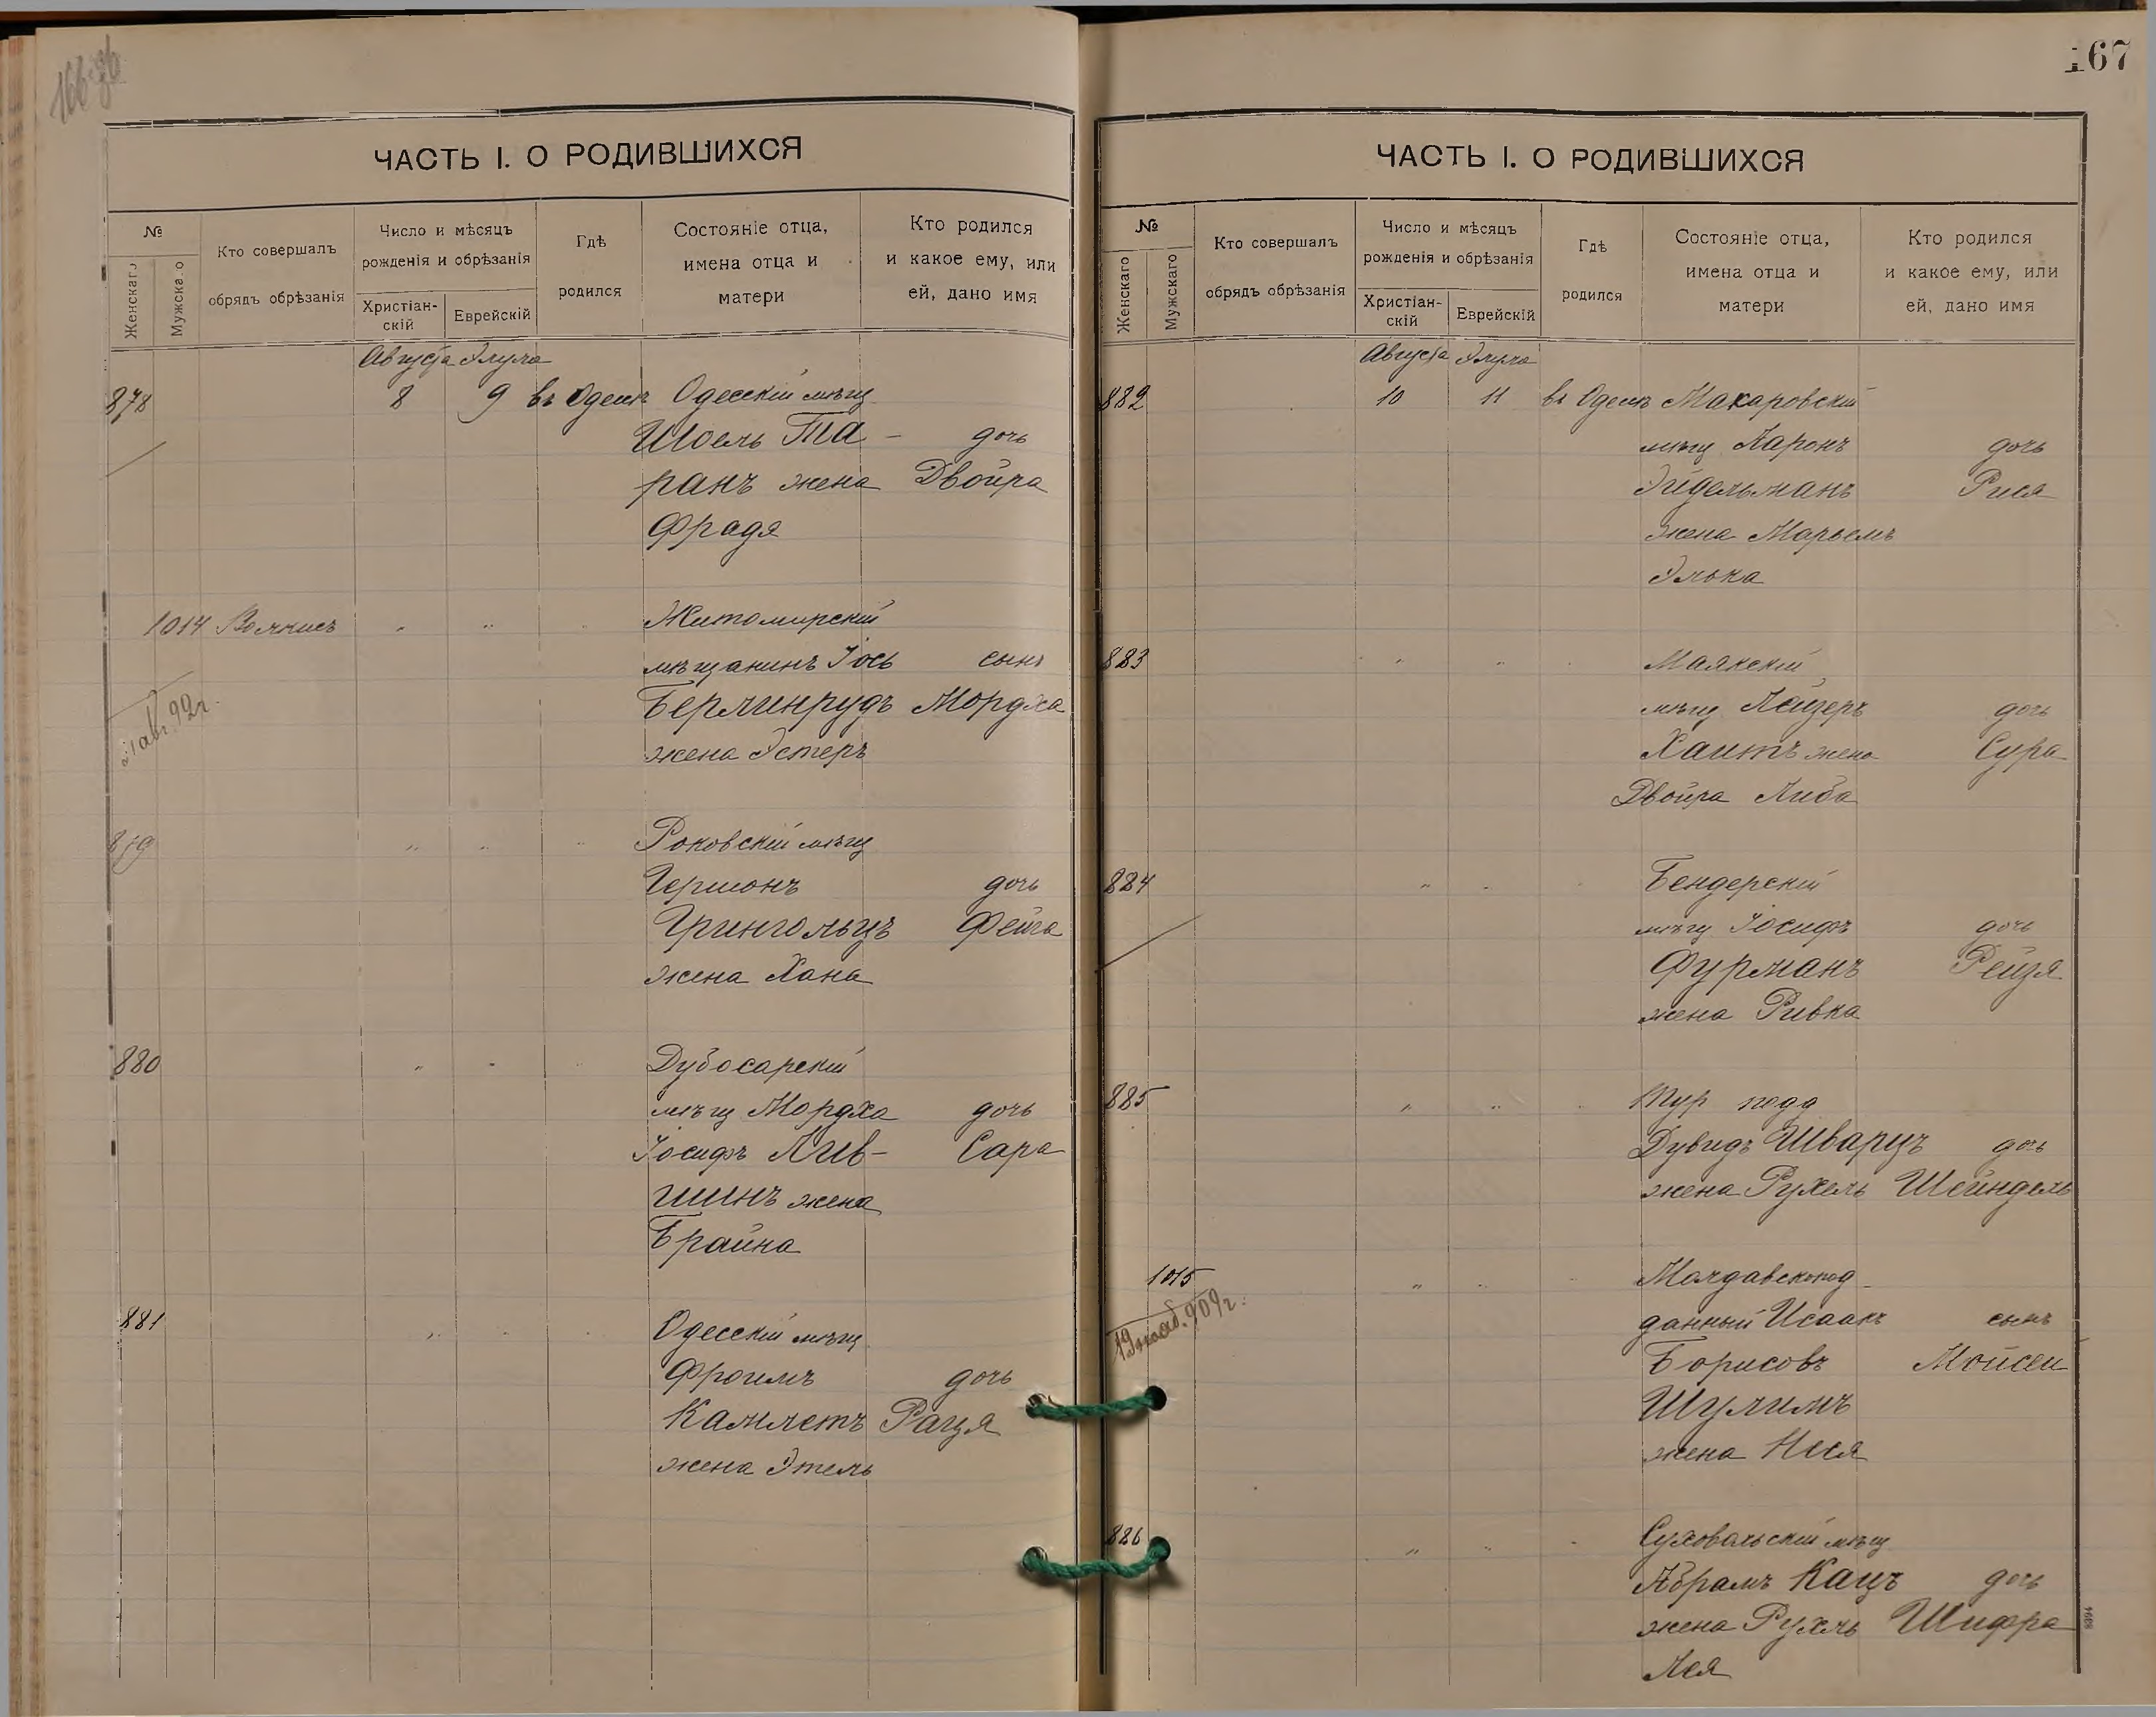 167
ЧАСТЬ I. О РОДИВШИХСЯ
№
Женскаго
Мужскаго
Кто совершалъ
обрядъ обрѣзанія
Число и мѣсяцъ
рожденія и обрѣзанія
Христіан-
скій
Еврейскій
Гдѣ
родился
Состояніе отца,
имена отца и
матери
Кто родился
и какое ему, или
ей, дано имя
Августа Элула
878 8 9 въ Одессѣ Одесскій мѣщ
Шоель Та- дочь
ранъ жена Двойра
Фрадя
1014 Житомирскій
мѣщанинъ Іось сынъ
Берлинрудъ Мордха
жена Эстеръ
21 авг. 92 г.
879 " " " Роковскій мѣщ
Гершонъ дочь
Грингольцъ Фейга
жена Хана
880 " " " Дубосарскій
мѣщ Мордха дочь
Іосифъ Лив- Сара
шинъ жена
Брайна
881 " " Одесскій мѣщ
Фроимъ дочь
Камлетъ Раця
жена Этель
ЧАСТЬ I. О РОДИВШИХСЯ
№
Женскаго
Мужскаго
Кто совершалъ
обрядъ обрѣзанія
Число и мѣсяцъ
рожденія и обрѣзанія
Христіан-
скій
Еврейскій
Гдѣ
родился
Состояніе отца,
имена отца и
матери
Кто родился
и какое ему, или
ей, дано имя
Августа Элула
882 10 11 въ Одессѣ Макаровскій
мѣщ Ааронъ дочь
Эйдельманъ Рися
жена Марьемъ
Элька
883 " " " Маякскій
мѣщ Лейзеръ дочь
Хаитъ жена Сура
Двойра Либа
884 " " " Бендерскій
мѣщ Іосифъ дочь
Фурманъ Рейзя
жена Ривка
885 " " " Тур подд
Дувидъ Шварцъ дочь
жена Рухель Шейндель
1015 " " " Молдавскопод-
данный Исаакъ сынъ
Борисовъ Мойсей
Шулимъ
жена Нися
909 г.
886 " " " Суховольскій мѣщ
Абрамъ Кацъ дочь
жена Рухль Шифра
Лея